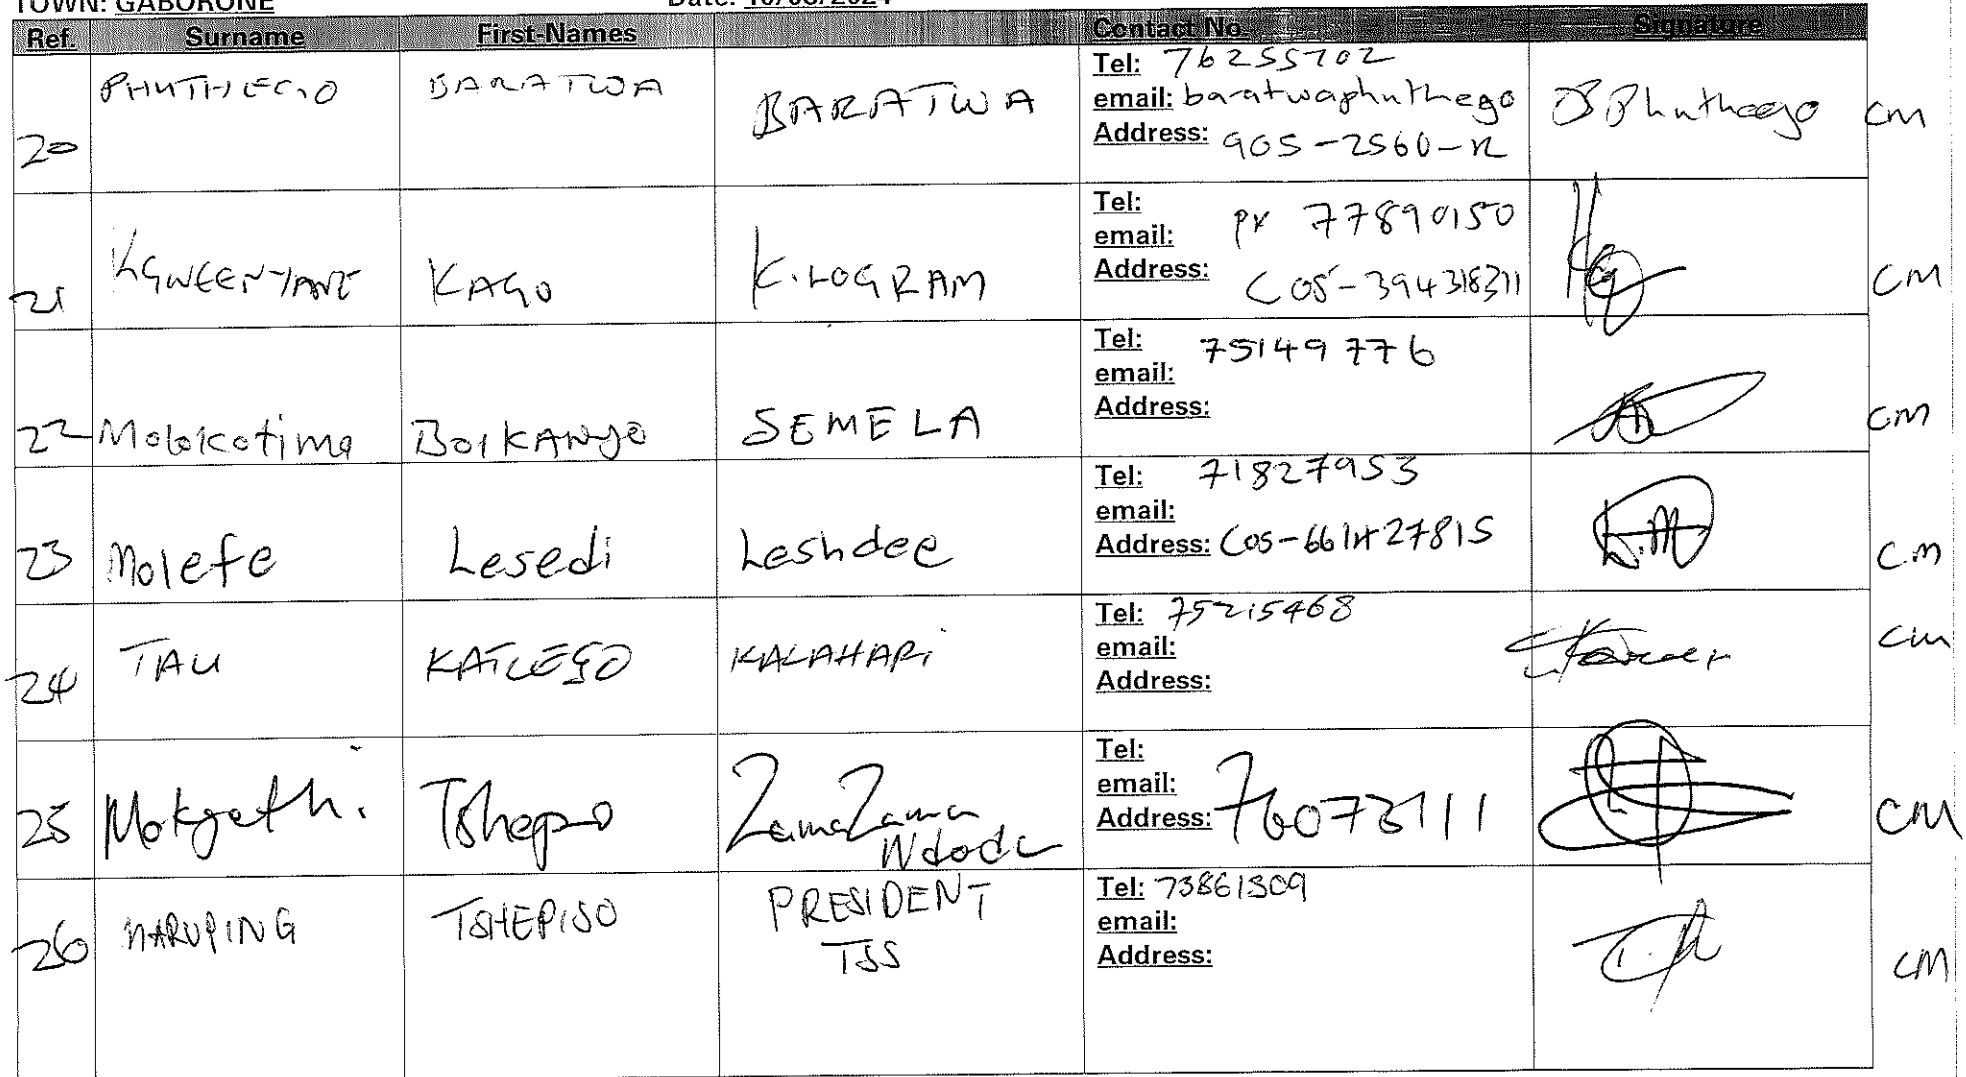 TOWN: GABORONE Date: 10/08/2024
Ref. Surname First-Names Contact No. Signature
20 PHUTHEGO BARATWA BARATWA Tel: 76255702
email: baratwaphuthego
Address: 905-2560-R
B Phuthego cm
21 KGWEENYANE KAGO KILOGRAM Tel:
email: px 77890150
Address: COS-394318311
CM
22 Molokotima BOIKANYO SEMELA Tel: 75149776
email:
Address:
CM
23 Molefe Lesedi Leshdee Tel: 71827953
email:
Address: COS-661H27815
L.M
CM
24 TAU KATLEGO KALAHARI Tel: 75215468
email:
Address:
cm
25 Mokgethi Tshepo ZamaZama
Ndoda
Tel:
email:
Address: 76073111
CM
26 MARUPING TSHEPISO PRESIDENT
TSS
Tel: 73861309
email:
Address:
CM